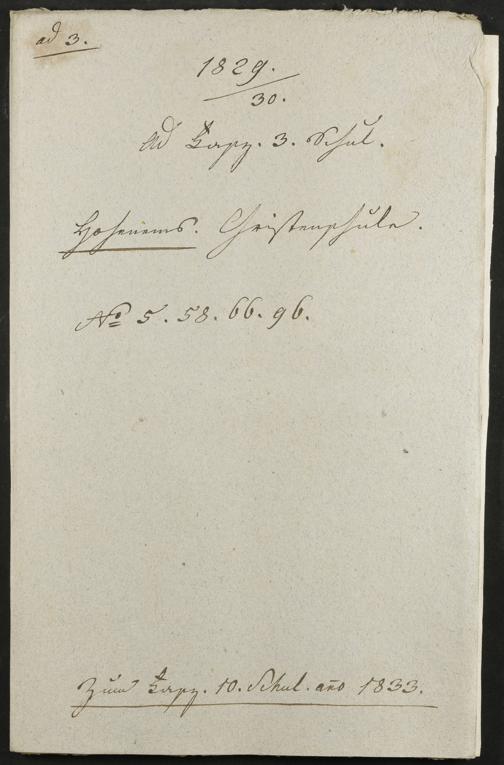 ad 3.
1829.
30.
ad Fasz. 3. Schul.
Hohenems. Christenschule.
No 5. 58. 66. 96.
Zum Fasz. 10. Schul. año 1833.